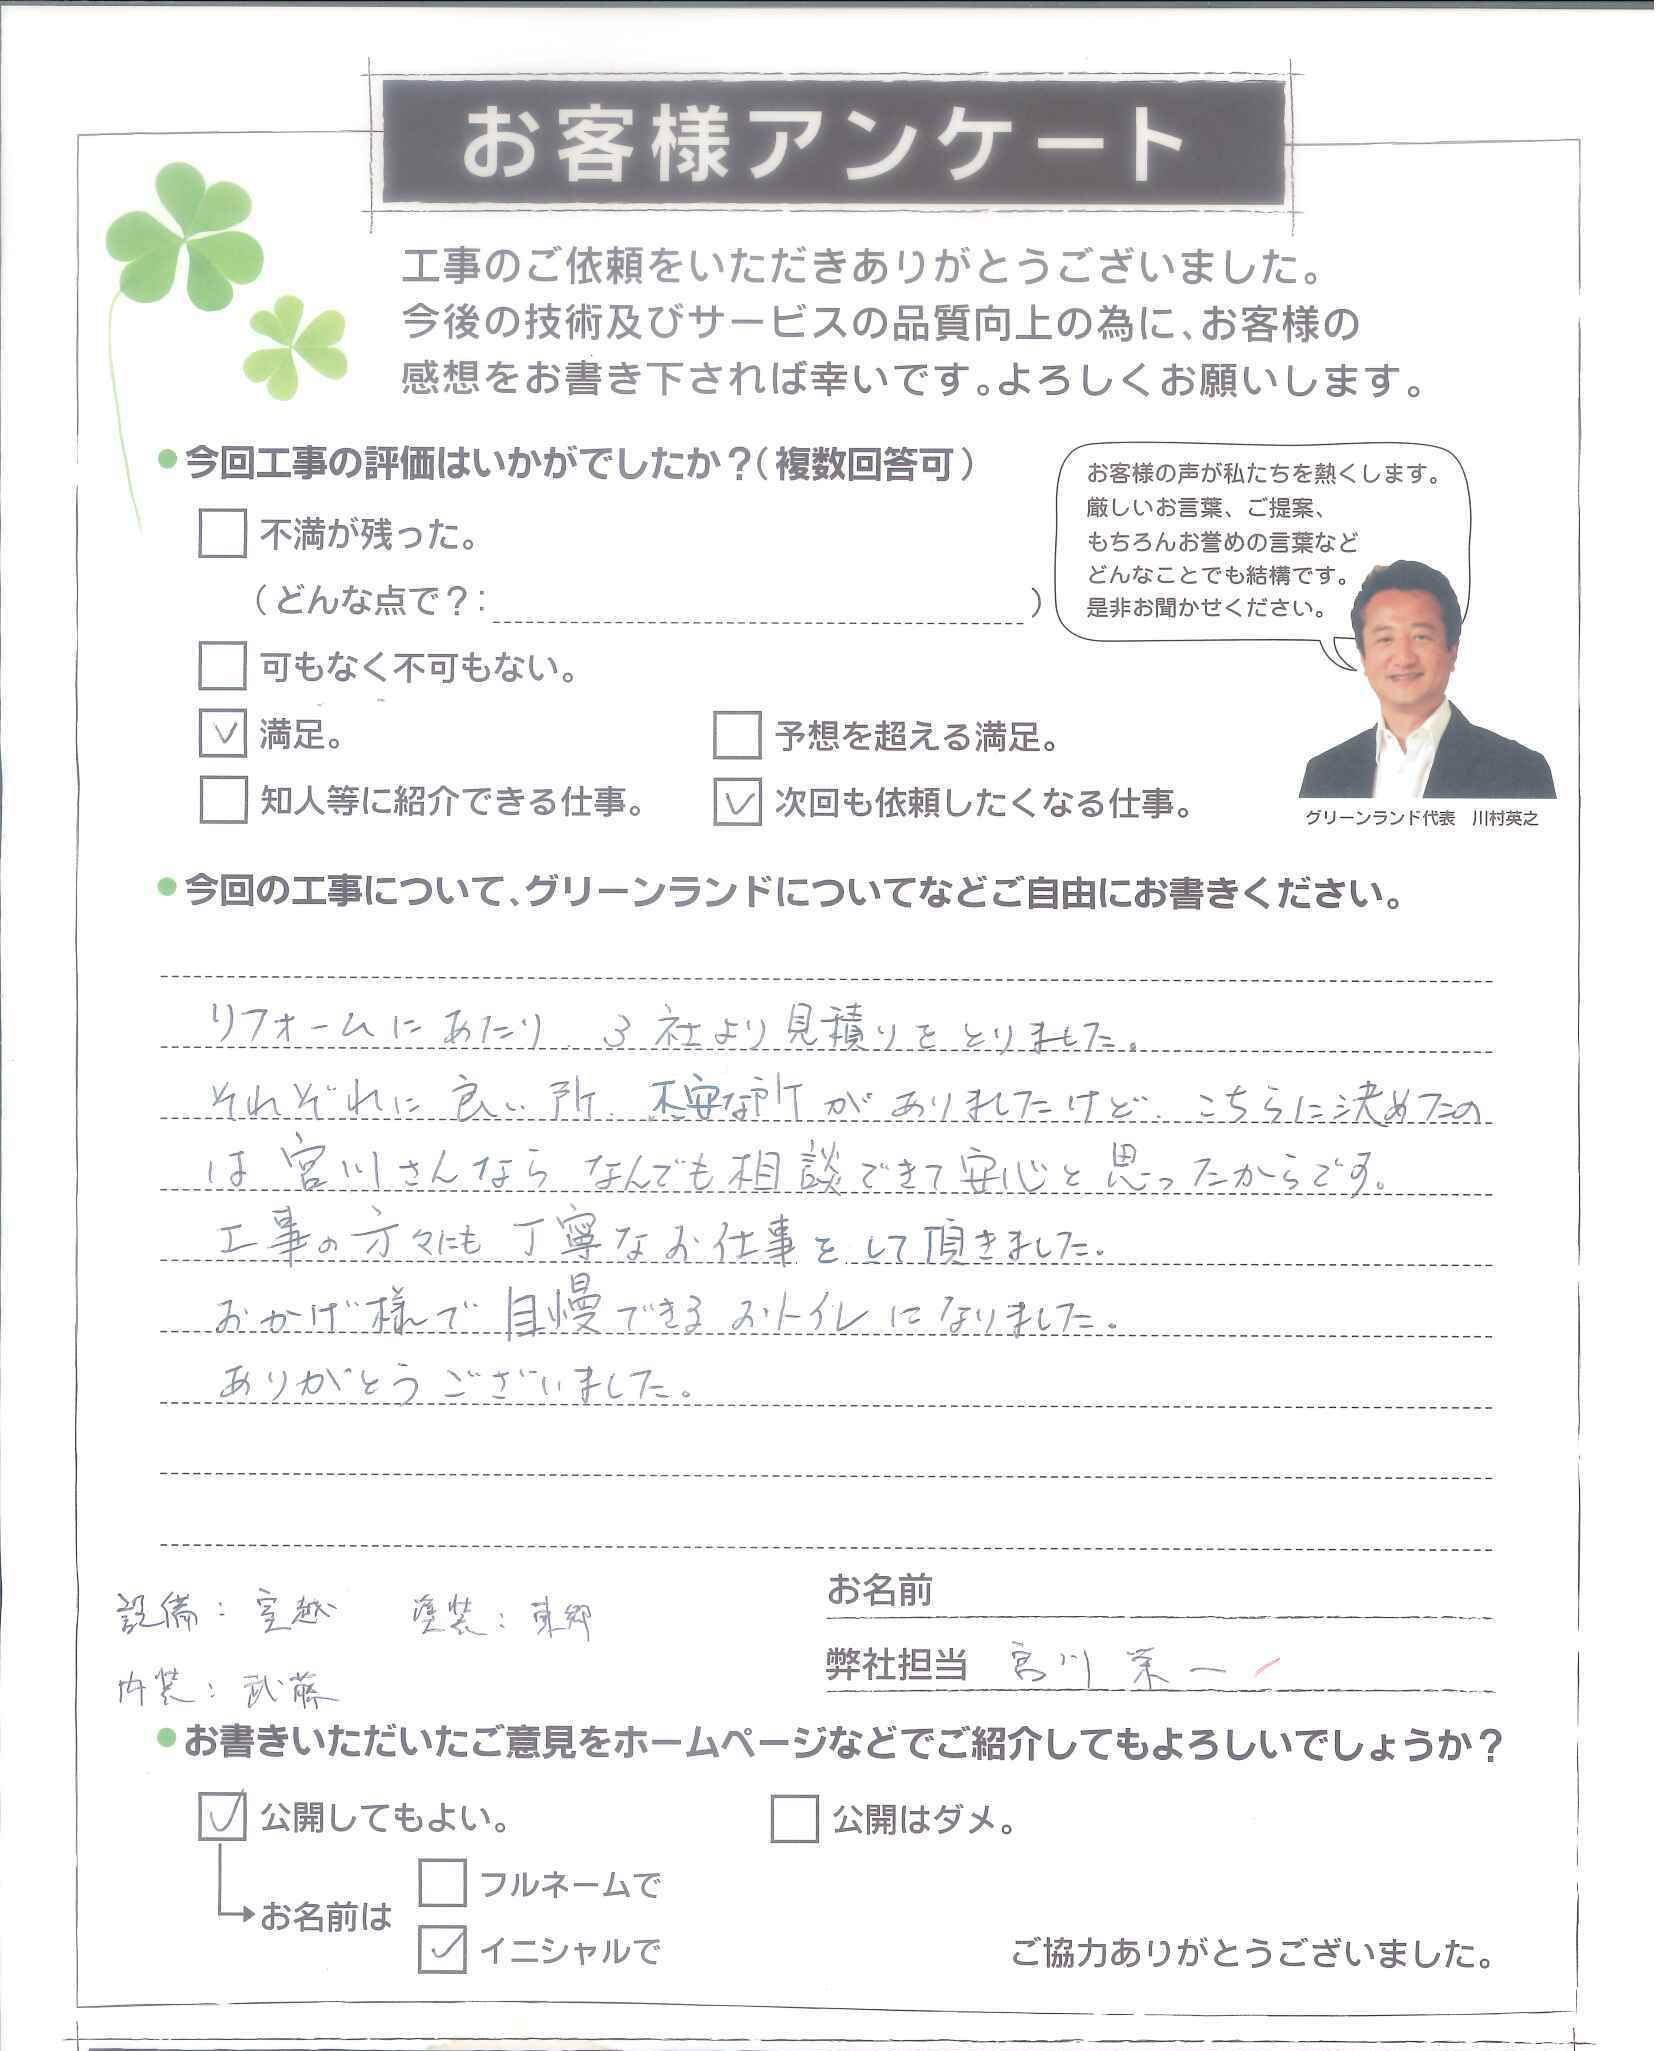 お客様アンケート
工事のご依頼をいただきありがとうございました。
今後の技術及びサービスの品質向上の為に、お客様の
感想をお書き下されば幸いです。よろしくお願いします。
●今回工事の評価はいかがでしたか？（複数回答可）
不満が残った。
（どんな点で？：　）
可もなく不可もない。
満足。
予想を超える満足。
知人等に紹介できる仕事。
次回も依頼したくなる仕事。
お客様の声が私たちを熱くします。
厳しいお言葉、ご提案、
もちろんお誉めの言葉など
どんなことでも結構です。
是非お聞かせください。
グリーンランド代表　川村英之
●今回の工事について、グリーンランドについてなどご自由にお書きください。
リフォームにあたり、3社より見積りをとりました。
それぞれに良い所、不安な所がありましたけど、こちらに決めたの
は宮川さんならなんでも相談できて安心と思ったからです。
工事の方々にも丁寧なお仕事をして頂きました。
おかげ様で自慢できるおトイレになりました。
ありがとうございました。
設備：宮越　塗装：東郷
内装：武藤
お名前
弊社担当　宮川栄一
●お書きいただいたご意見をホームページなどでご紹介してもよろしいでしょうか？
公開してもよい。
公開はダメ。
お名前は
フルネームで
イニシャルで
ご協力ありがとうございました。